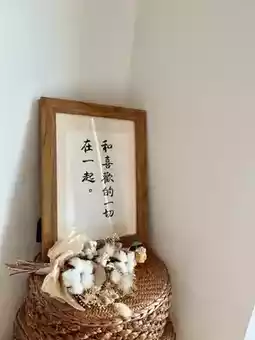 和喜歡的一切
在一起。